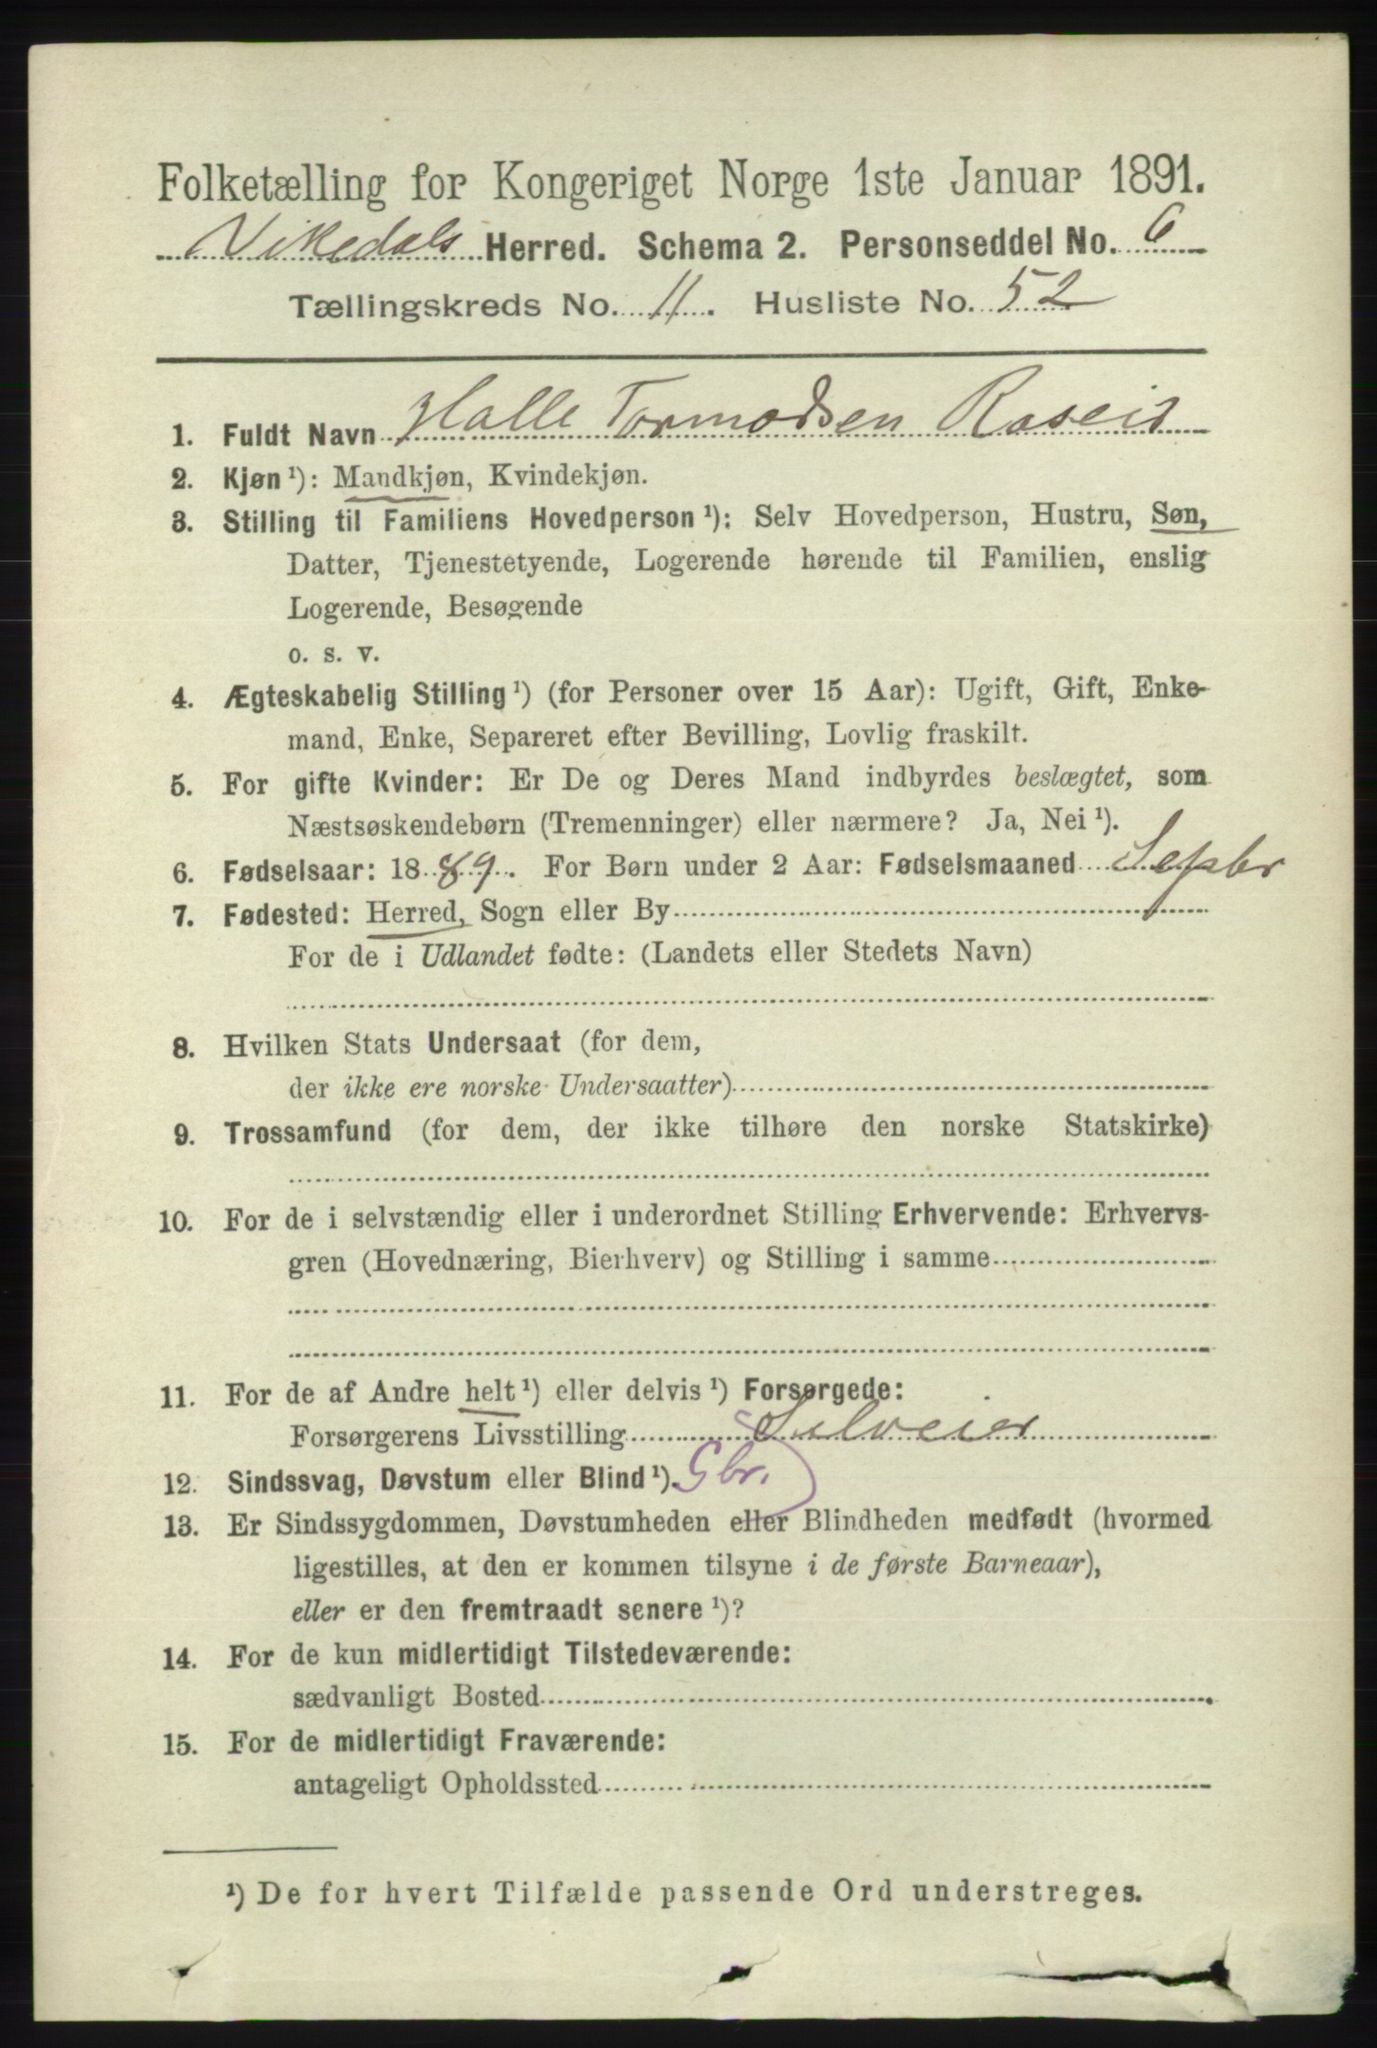 Folketælling for Kongeriget Norge 1ste Januar 1891.
Vikedals Herred. Schema 2. Personseddel No. 6
Tællingskreds No. 11. Husliste No. 52
1. Fuldt Navn Halle Tormodsen Røseid
2. Kjøn ¹): Mandkjøn, Kvindekjøn.
3. Stilling til Familiens Hovedperson ¹): Selv Hovedperson, Hustru, Søn,
Datter, Tjenestetyende, Logerende hørende til Familien, enslig
Logerende, Besøgende
o. s. v.
4. Ægteskabelig Stilling ¹) (for Personer over 15 Aar): Ugift, Gift, Enke-
mand, Enke, Separeret efter Bevilling, Lovlig fraskilt.
5. For gifte Kvinder: Er De og Deres Mand indbyrdes beslægtet, som
Næstsøskendebørn (Tremenninger) eller nærmere? Ja, Nei ¹).
6. Fødselsaar: 1889. For Børn under 2 Aar: Fødselsmaaned Septbr
7. Fødested: Herred, Sogn eller By
For de i Udlandet fødte: (Landets eller Stedets Navn)
8. Hvilken Stats Undersaat (for dem,
der ikke ere norske Undersaatter)
9. Trossamfund (for dem, der ikke tilhøre den norske Statskirke)
10. For de i selvstændig eller i underordnet Stilling Erhvervende: Erhvervs-
gren (Hovednæring, Bierhverv) og Stilling i samme
11. For de af Andre helt ¹) eller delvis ¹) Forsørgede:
Forsørgerens Livsstilling Selveier
12. Sindssvag, Døvstum eller Blind ¹). Gbr.
13. Er Sindssygdommen, Døvstumheden eller Blindheden medfødt (hvormed
ligestilles, at den er kommen tilsyne i de første Barneaar),
eller er den fremtraadt senere ¹)?
14. For de kun midlertidigt Tilstedeværende:
sædvanligt Bosted
15. For de midlertidigt Fraværende:
antageligt Opholdssted
¹) De for hvert Tilfælde passende Ord understreges.